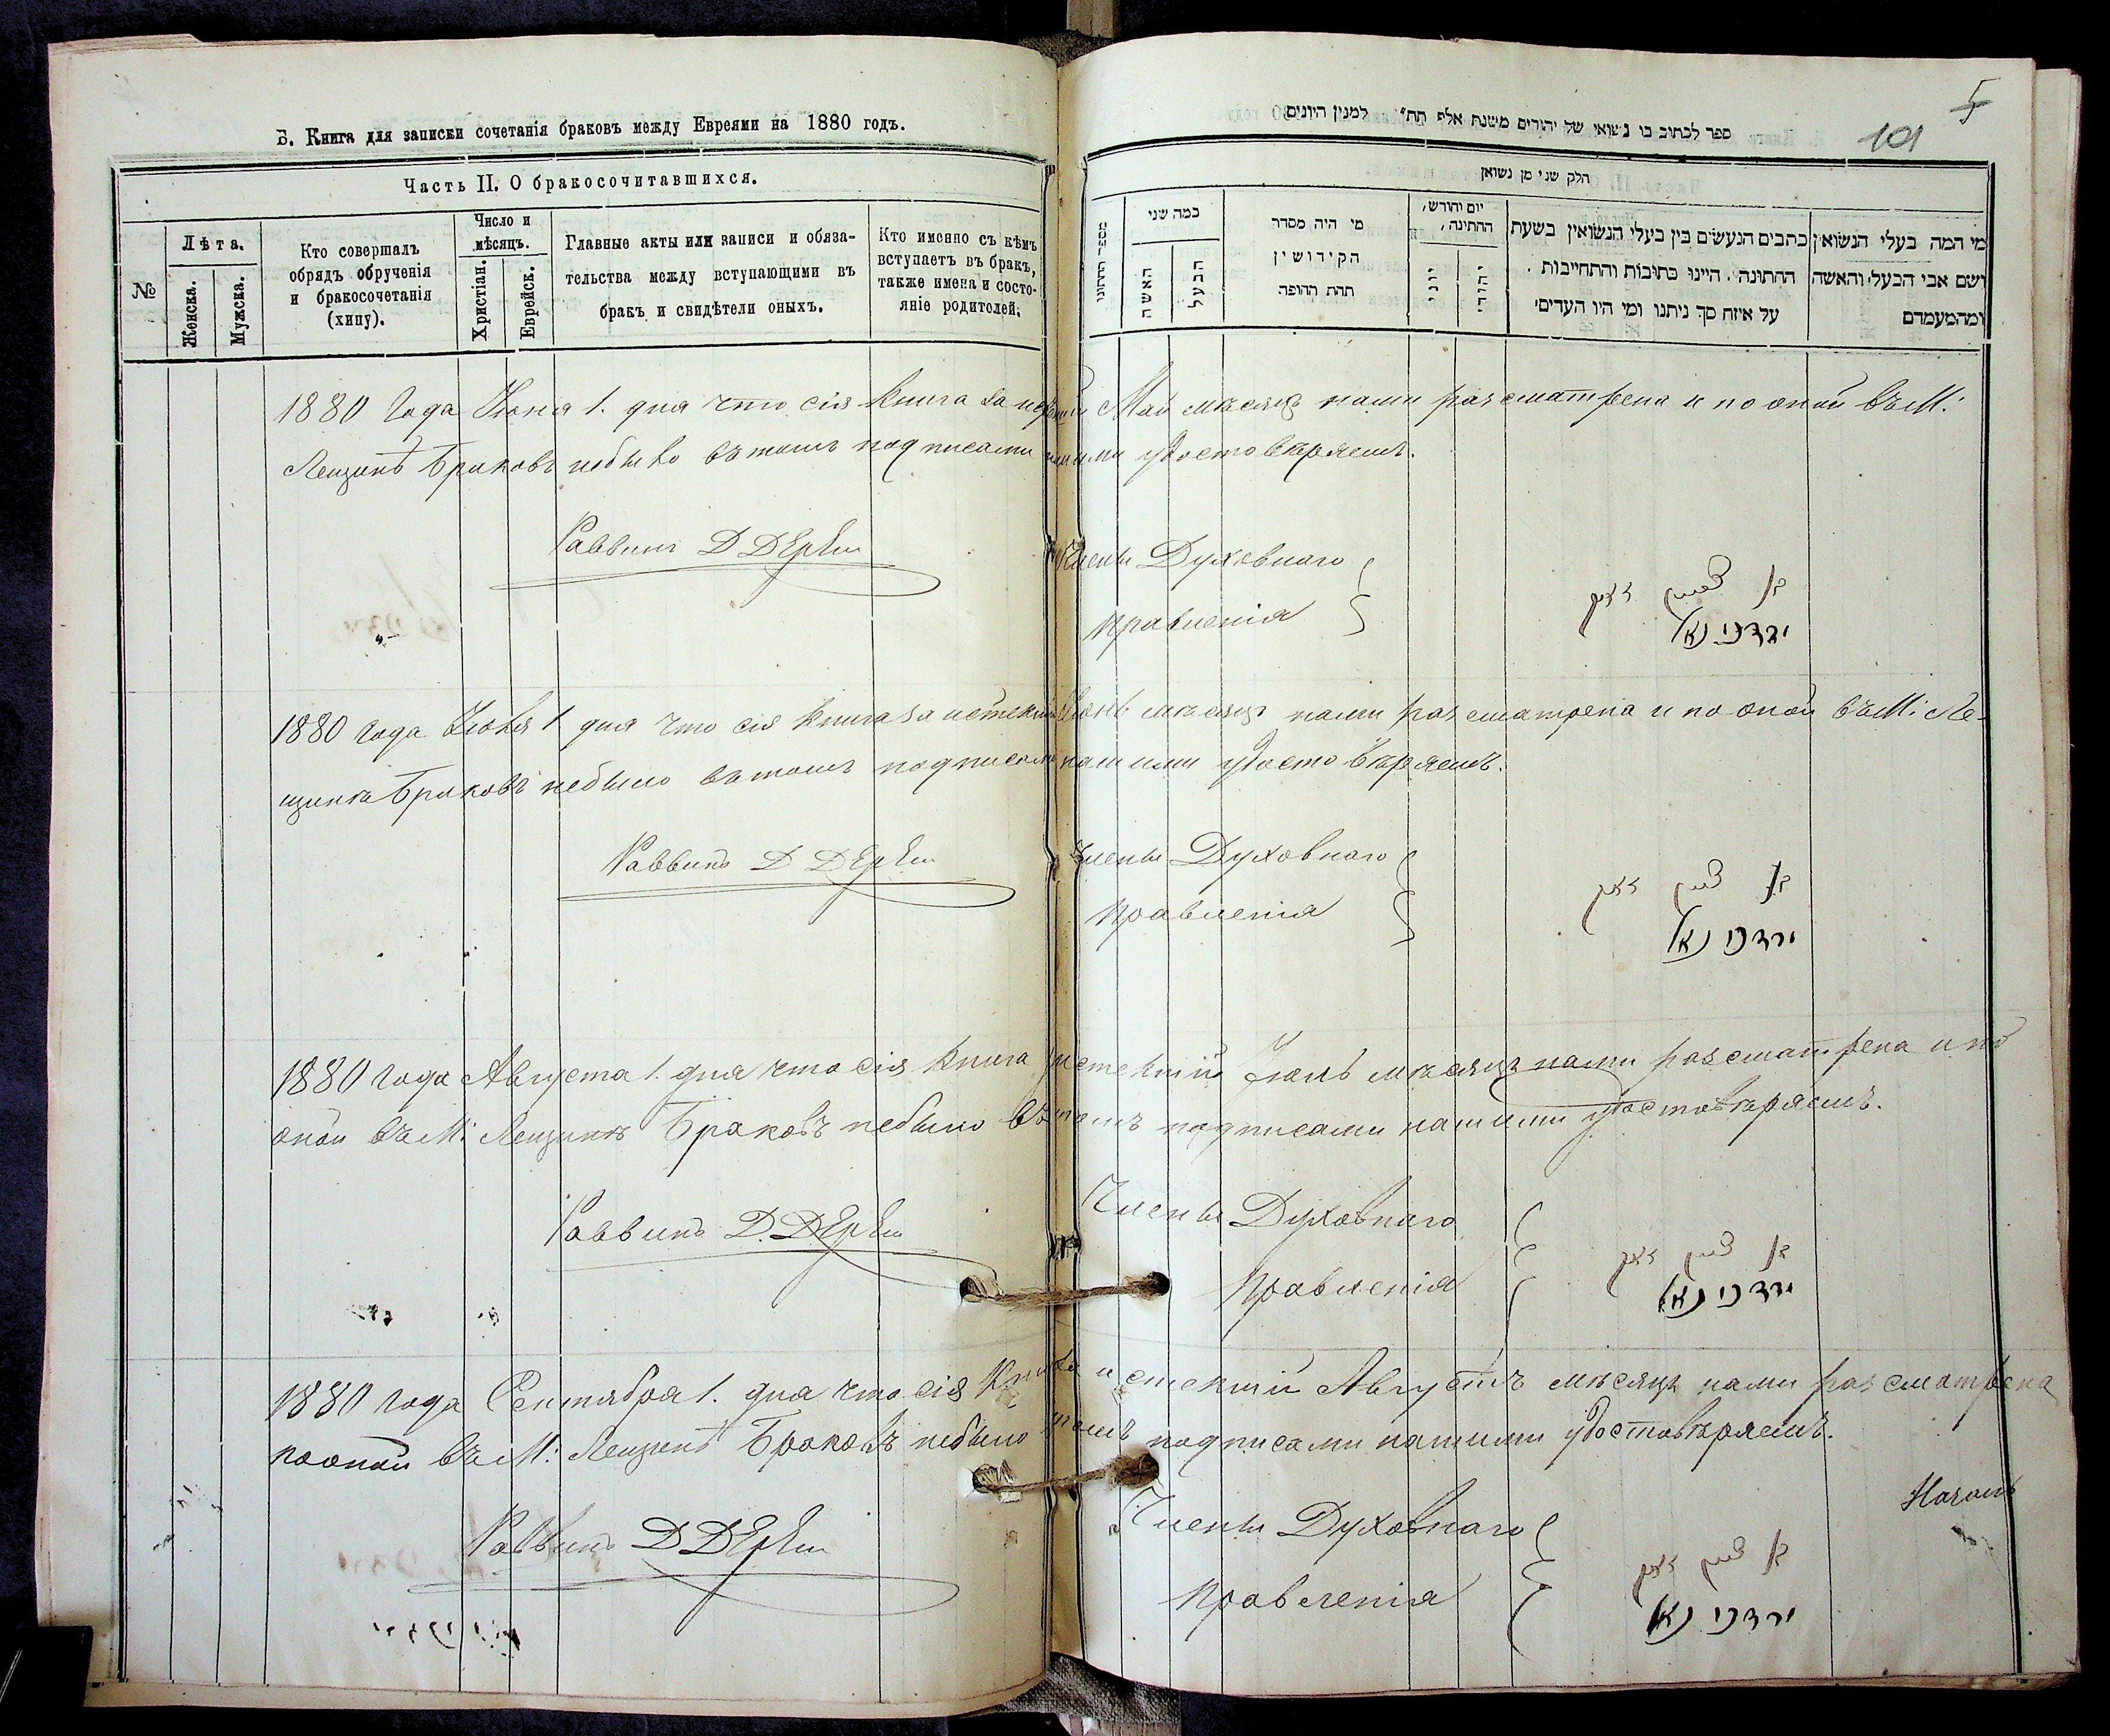 Б. Книга для записки сочетанія браковъ между Евреями на 1880 годъ.
Часть II. О бракосочитавшихся.
№
Лѣта.
Женска.
Мужска.
Кто совершалъ
обрядъ обрученія
и бракосочетанія
(хипу).
Число и
мѣсяцъ.
Христіан.
Еврейск.
Главные акты или записи и обяза-
тельства между вступающими въ
бракъ и свидѣтели оныхъ.
Кто именно съ кѣмъ
вступаетъ въ бракъ,
также имена и состо-
яніе родителей.
5
101
ספר לכתוב בו נשואי של יהודים משנת אלף תת״ למנין היונים
חלק שני מן נשואן
כמה שני
האשה
הבעל
מי היה מסדר
הקידושין
תחת החופה
יום וחודש
החתונה
יוני
יהודי
כתבים הנעשים בין בעלי הנשואין בשעת
החתונה. היינו כתובות והתחייבות
על איזה סך ניתנו ומי היו העדים
מי המה בעלי הנשואין
ושם אבי הבעל והאשה
ומהמעמדם
1880 года Іюня 1. дня что сія Книга за Май мѣсяцъ нами разсматрена и по оной въ М:
Лещинѣ Браковъ небыло въ томъ подписами нашими удостовѣряемъ.
Раввинъ Д
Члены Духовнаго
Правленія
1880 года Іюля 1 дня что сія книга за истекшій Іюнь мѣсяцъ нами разсматрена и по оной въ М: Ле-
щинѣ Браковъ небыло въ томъ подписами нашими удостовѣряемъ.
Раввинъ Д
Члены Духовнаго
Правленія
1880 года Августа 1. дня что сія Книга истекшій Іюль мѣсяцъ нами разсматрена и по
оной въ М: Лещинѣ Браковъ небыло въ томъ подписами нашими удостовѣряемъ.
Раввинъ Д.
Члены Духовнаго
Правленія
1880 года Сентября 1. дня что сія Книга истекшій Августъ мѣсяцъ нами разсматрена
по оной въ М: Лещинѣ Браковъ небыло томъ подписами нашими удостовѣряемъ.
Раввинъ Д
Члены Духовнаго
Правленія